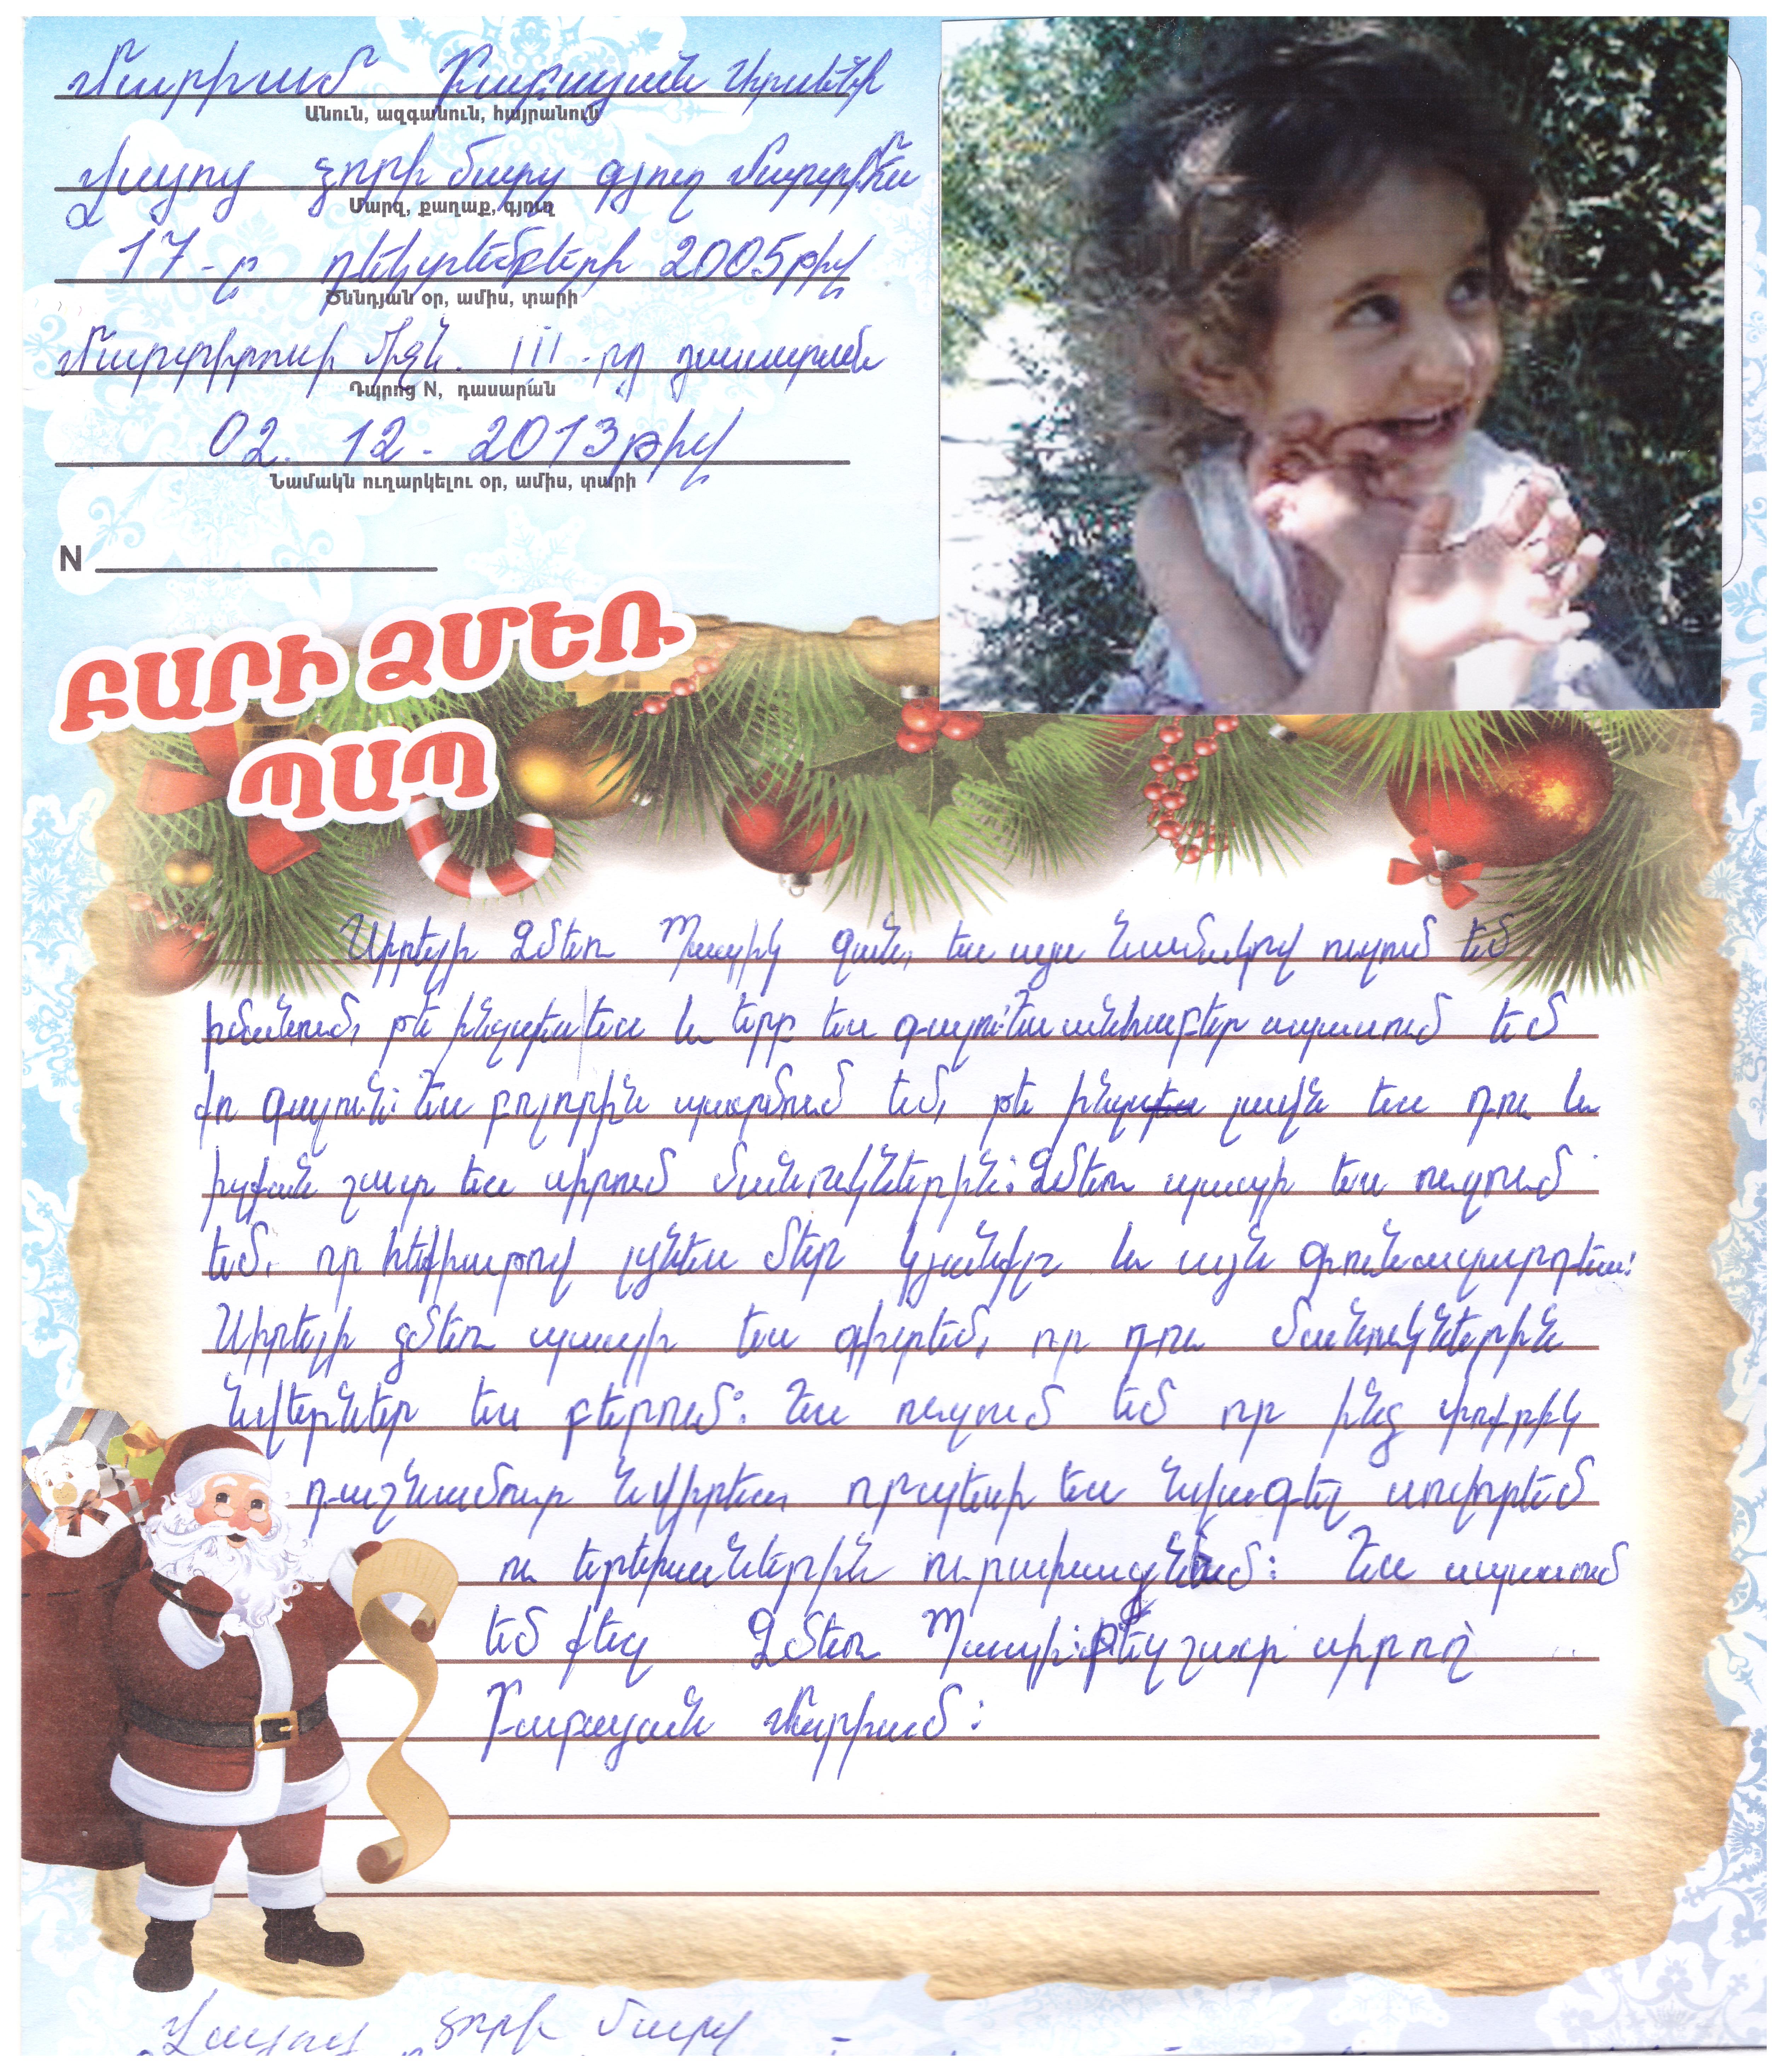 Մարիամ Բաբայան Արսենի
Անուն, ազգանուն, հայրանուն
Վայոց ձորի մարզ գյուղ Մարտիրոս
Մարզ, քաղաք, գյուղ
17-ը դեկտեմբերի 2005թիվ
Ծննդյան օր, ամիս, տարի
Մարտիրոսի միջն. III-րդ դասարան
Դպրոց N, դասարան
02. 12. 2013թիվ
Նամակն ուղարկելու օր, ամիս, տարի
N
ԲԱՐԻ ՁՄԵՌ
ՊԱՊ
Սիրելի Ձմեռ Պապիկ ջան, ես այս նամակով ուզում եմ
իմանամ, թե ինչպես ես և երբ ես գալու: Ես անհամբեր սպասում եմ
քո գալուն: Ես բոլորին պատմում եմ, թե ինչ լավն ես դու և
ինչքան շատ ես սիրում մանուկներին: Ձմեռ պապի ես ուզում
եմ, որ հեքիաթով լցնես մեր կյանքը և այն գունազարդես:
Սիրելի ձմեռ պապի ես գիտեմ, որ դու մանուկներին
նվերներ ես բերում: Ես ուզում եմ որ ինձ փոքրիկ
դաշնամուր նվիրես, որպեսի ես նվագել սովորեմ
ու երեխաներին ուրախացնեմ: Ես սպասում
եմ քեզ Ձմեռ Պապի: Քեզ շատ սիրող՝
Բաբայան Մարիամ:
Վայոց ձորի մարզ